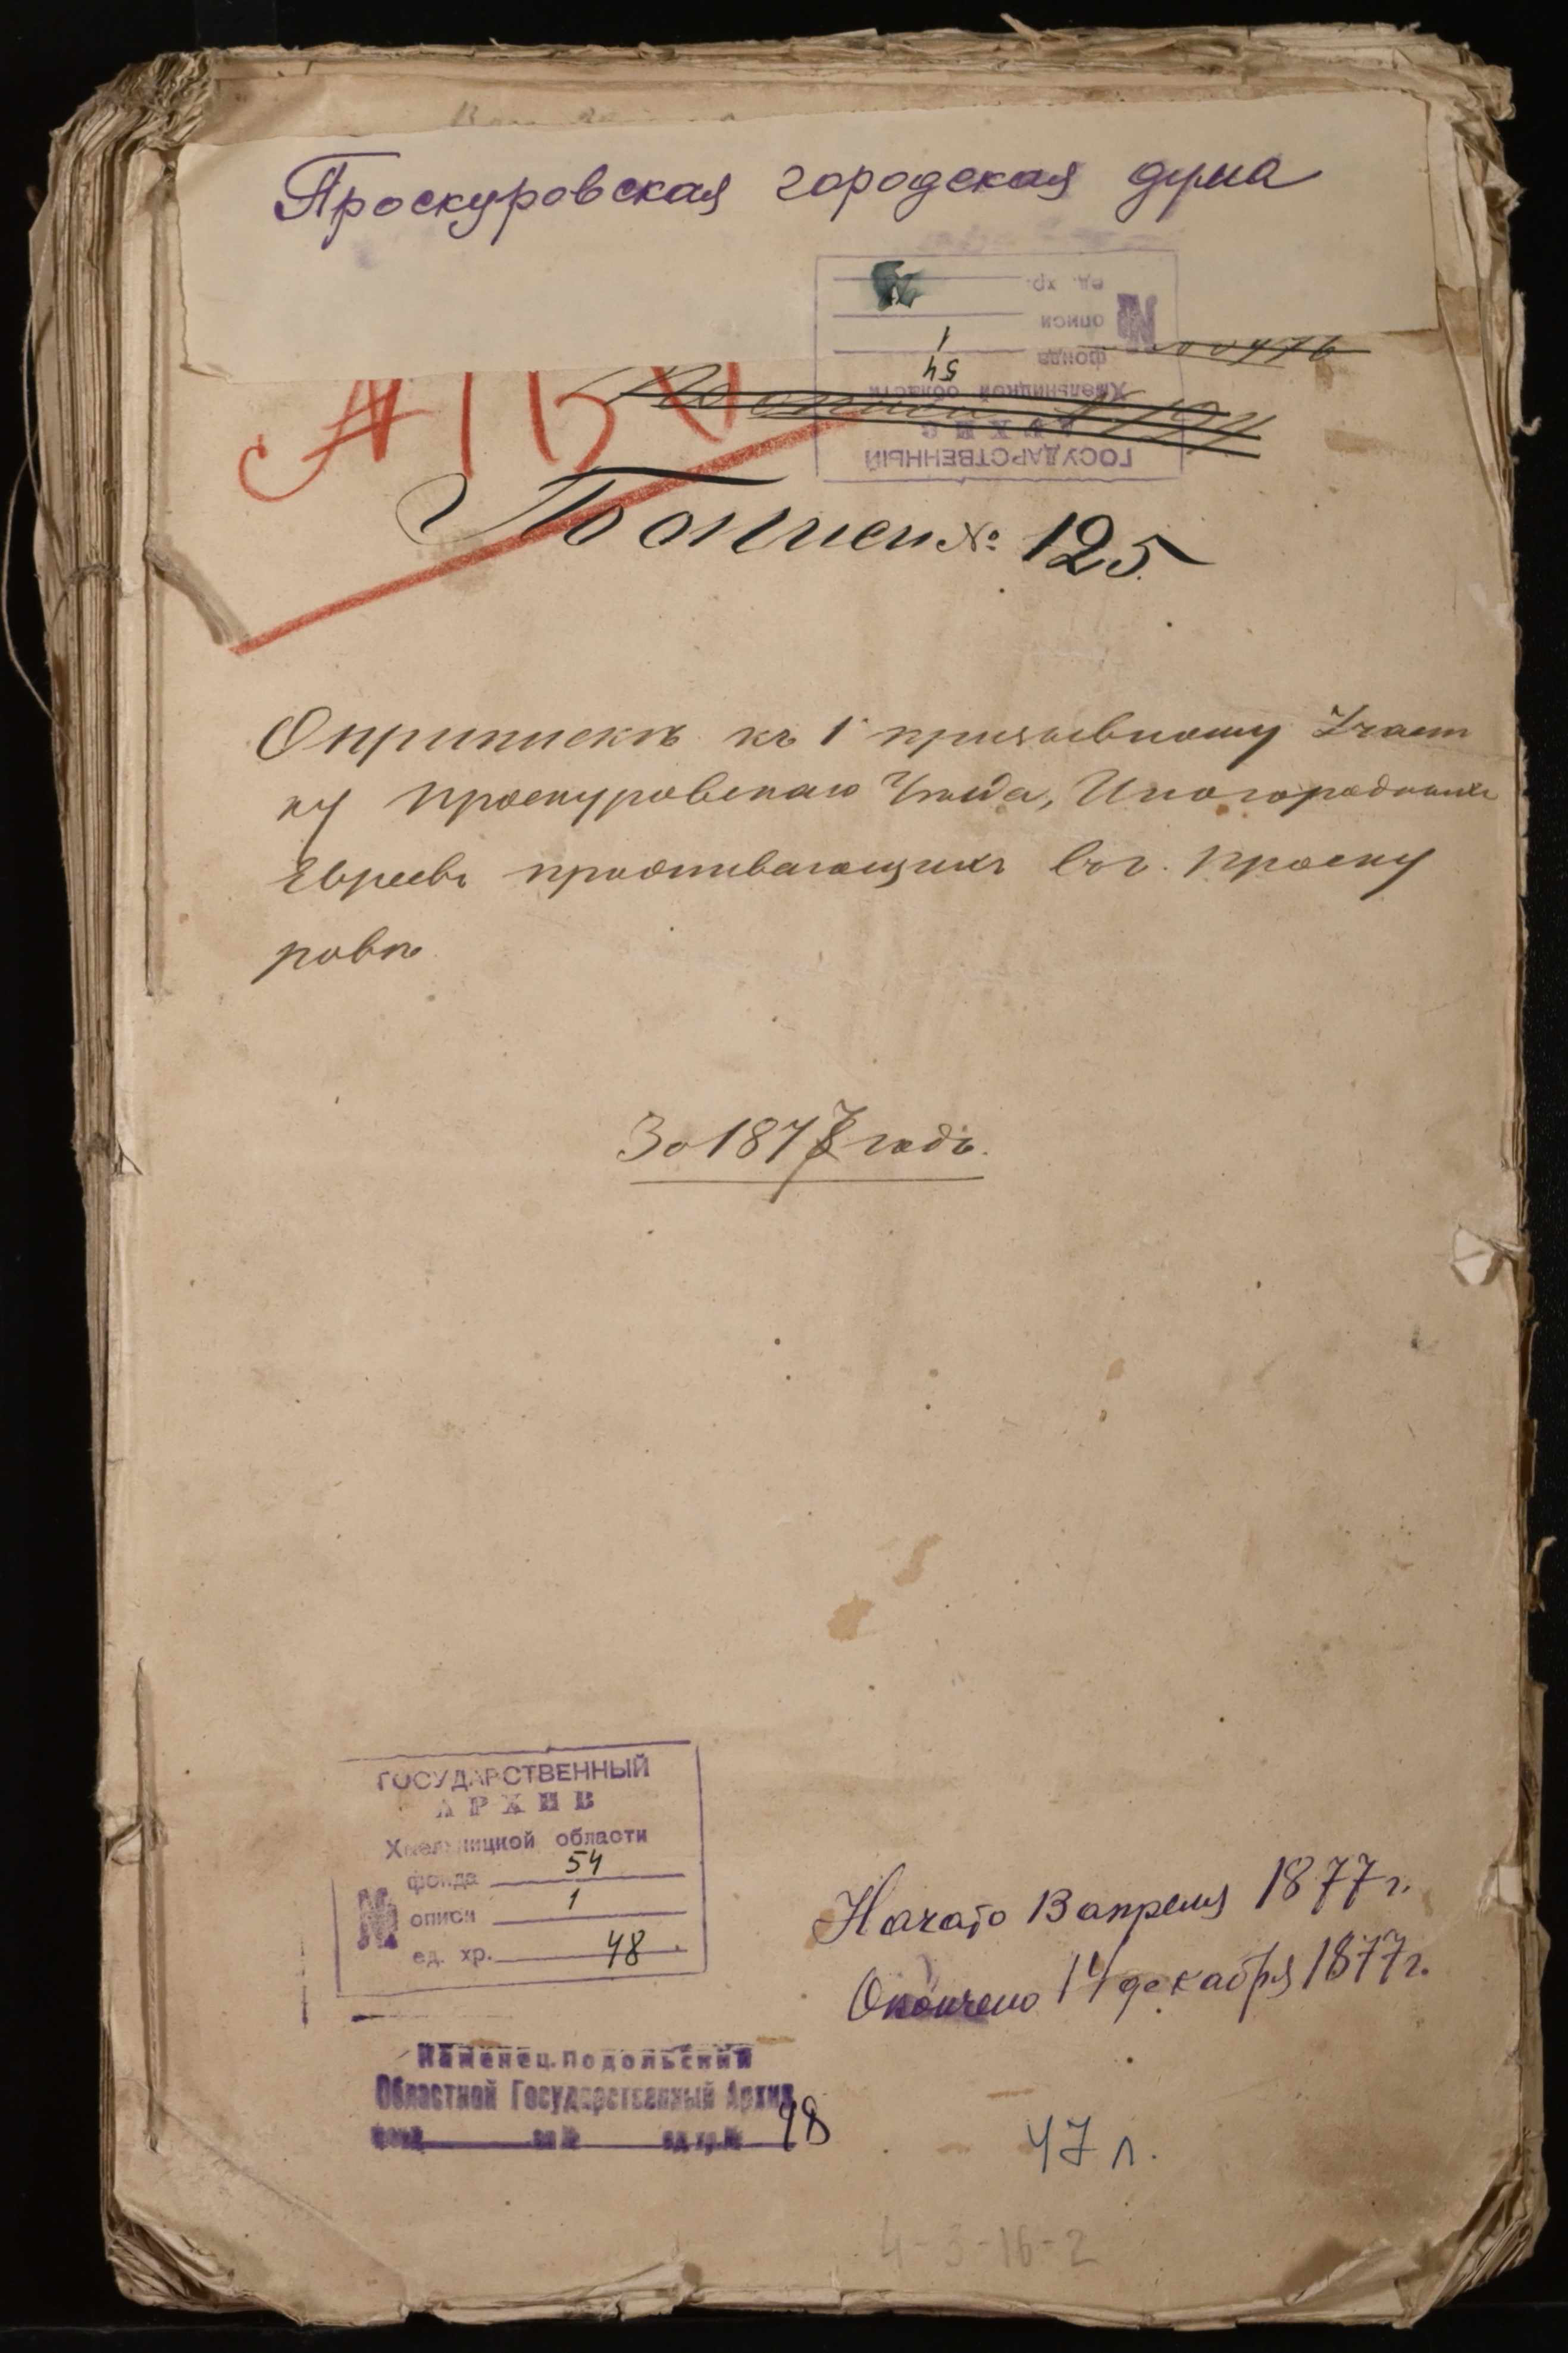 Проскуровская городская дума
ед. хр.
описи 1
№
фонда 54
Хмельницкой области
АРХИВ
ГОСУДАРСТВЕННЫЙ
По описи № 125.
О припискѣ къ 1 призывному Участ
ку Проскуровскаго Уѣзда, Иногородныхъ
Евреевъ проживающихъ въ г. Проску
ровѣ
За 1877 годъ.
ГОСУДАРСТВЕННЫЙ
АРХИВ
Хмельницкой области
фонда 54
№ описи 1
ед. хр. 48
Начато 13 апреля 1877 г.
Окончено 14 декабря 1877 г.
Каменец-Подольский
Областной Государственный Архив
фонд оп № ед. хр. № 48
47 л.
4-3-16-2